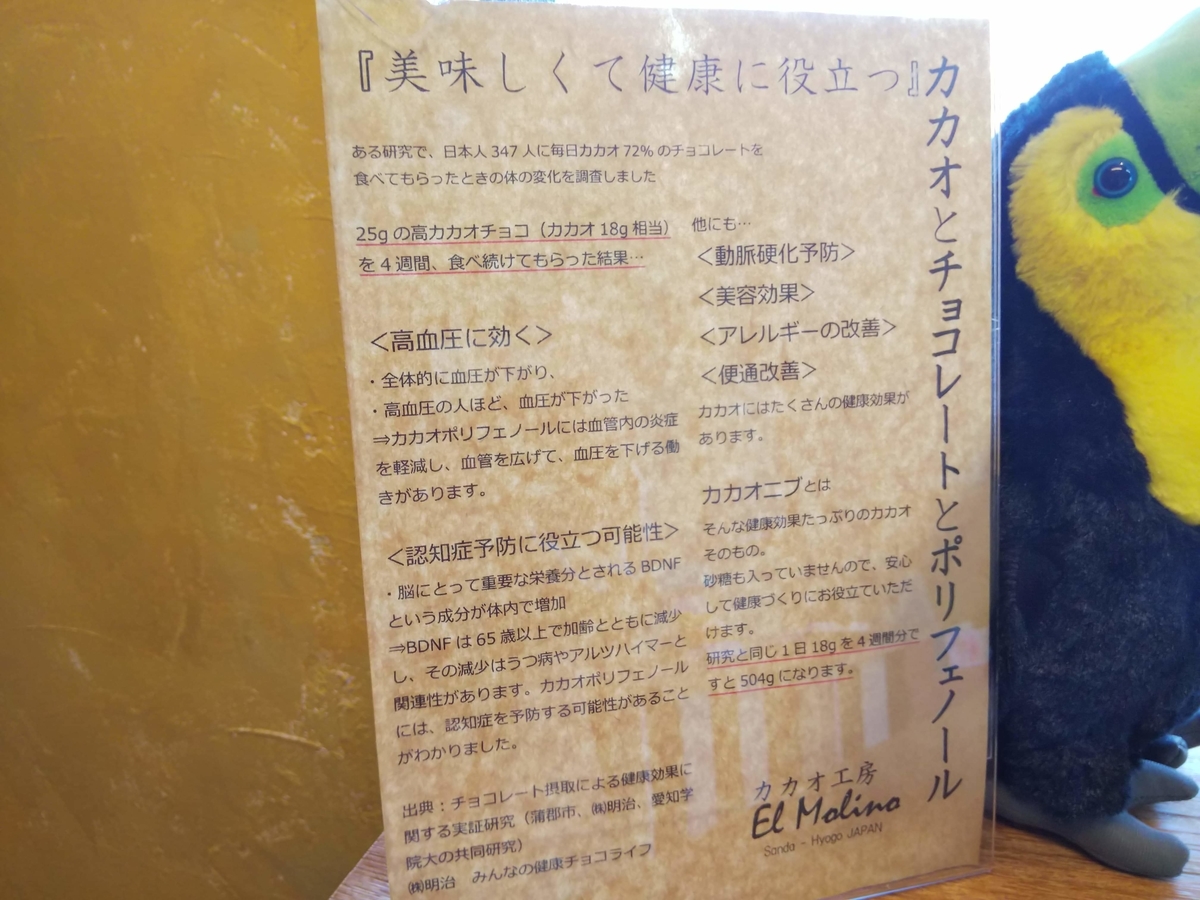 カカオとチョコレートとポリフェノール
『美味しくて健康に役立つ』
ある研究で、日本人 347 人に毎日カカオ 72% のチョコレートを
食べてもらったときの体の変化を調査しました
25g の高カカオチョコ（カカオ 18g 相当）
を 4 週間、食べ続けてもらった結果…
＜高血圧に効く＞
・全体的に血圧が下がり、
・高血圧の人ほど、血圧が下がった
⇒カカオポリフェノールには血管内の炎症
を軽減し、血管を広げて、血圧を下げる働
きがあります。
＜認知症予防に役立つ可能性＞
・脳にとって重要な栄養分とされる BDNF
という成分が体内で増加
⇒BDNF は 65 歳以上で加齢とともに減少
し、その減少はうつ病やアルツハイマーと
関連性があります。カカオポリフェノール
には、認知症を予防する可能性があること
がわかりました。
出典：チョコレート摂取による健康効果に
関する実証研究（蒲郡市、㈱明治、愛知学
院大の共同研究）
㈱明治　みんなの健康チョコライフ
他にも…
＜動脈硬化予防＞
＜美容効果＞
＜アレルギーの改善＞
＜便通改善＞
カカオにはたくさんの健康効果が
あります。
カカオニブとは
そんな健康効果たっぷりのカカオ
そのもの。
砂糖も入っていませんので、安心
して健康づくりにお役立ていただ
けます。
研究と同じ 1 日 18g を 4 週間分で
すと 504g になります。
カカオ工房
El Molino
Sanda - Hyogo JAPAN